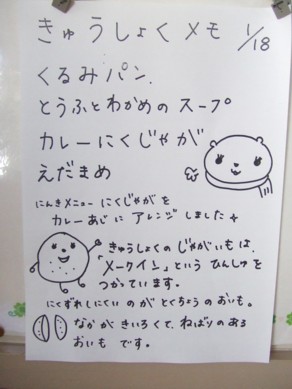 きゅうしょくメモ 1/18
くるみパン.
とうふとわかめのスープ
カレーにくじゃが
えだまめ
にんきメニュー にくじゃがを
カレーあじにアレンジしました
きゅうしょくのじゃがいもは、
「メークイン」という ひんしゅを
つかっています。
にくずれしにくいのがとくちょうのおいも。
なかがきいろくて、ねばりのある
おいもです。